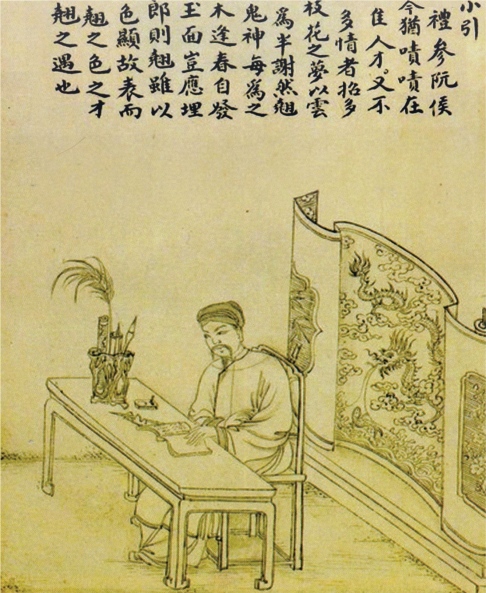 小引
禮參阮侯
今猶嘖嘖在
佳人才又不
多情者招多
枝花之夢以雲
爲半謝然翹
鬼神每爲之
木逢春自發
玉面豈應埋
郎則翹雖以
色顯故表而
翹之色之才
翹之遇也